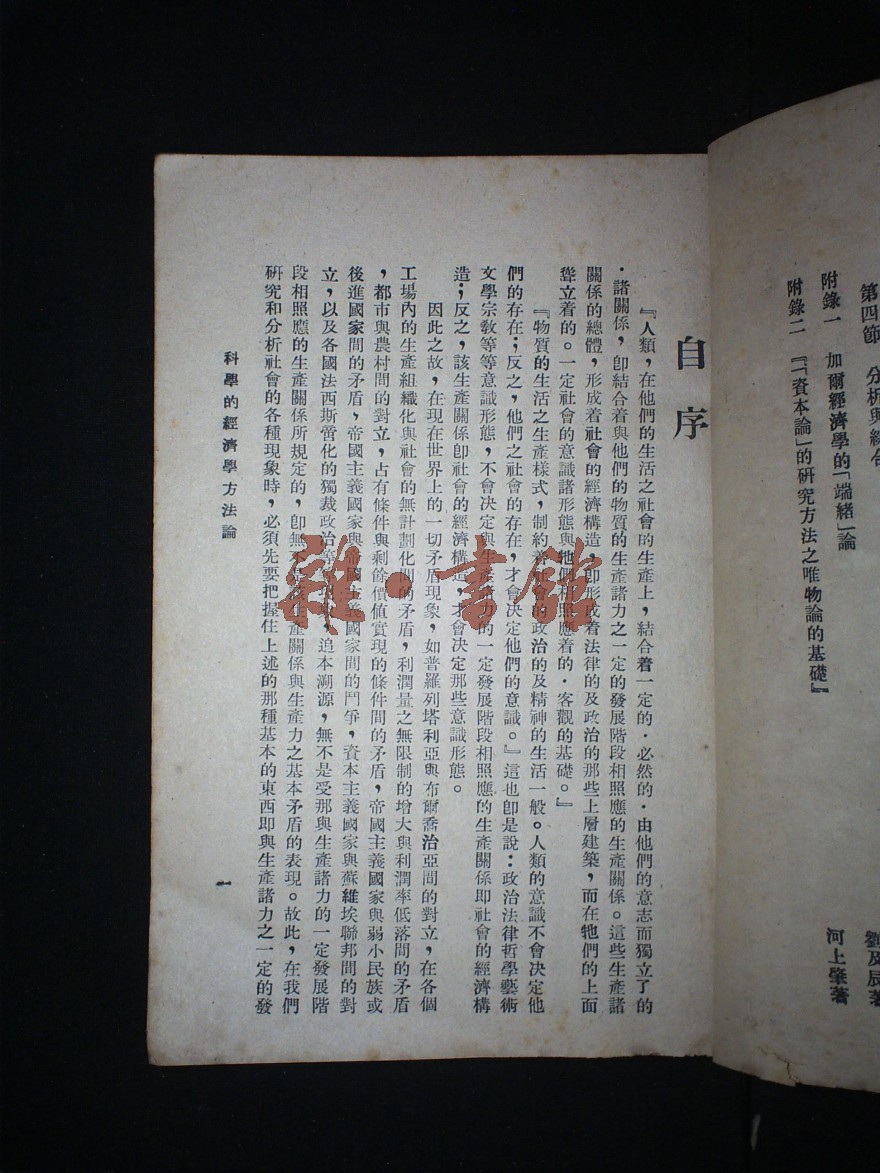 第四節　分析與綜合
附錄一　加爾經濟學的「端緒」論
劉及辰著
附錄二　『「資本論」的研究方法之唯物論的基礎』
河上肇著
自序
『人類，在他們的生活之社會的生產上，結合着一定的·必然的·由他們的意志而獨立了的
·諸關係，卽結合着與他們的物質的生產諸力之一定的發展階段相照應的生產關係。這些生產諸
關係的總體，形成着社會的經濟構造，卽形成着法律的及政治的那些上層建築，而在牠們的上面
聳立着的。一定社會的意識諸形態與他們相照應着的·客觀的基礎。』
『物質的生活之生產樣式，制約着社會的政治的及精神的生活一般。人類的意識不會決定他
們的存在；反之，他們之社會的存在，才會決定他們的意識。』這也卽是說：政治法律哲學藝術
文學宗敎等等意識形態，不會決定與生產諸力的一定發展階段相照應的生產關係即社會的經濟構
造；反之，該生產關係卽社會的經濟構造，才會決定那些意識形態。
因此之故，在現在世界上的一切矛盾現象，如普羅列塔利亞與布爾喬治亞間的對立，在各個
工場內的生產組織化與社會的無計劃化間的矛盾，利潤量之無限制的增大與利潤率低落間的矛盾
，都市與農村間的對立，占有條件與剩餘價值實現的條件間的矛盾，帝國主義國家與弱小民族或
後進國家間的矛盾，帝國主義國家與帝國主義國家間的鬥爭，資本主義國家與蘇維埃聯邦間的對
立，以及各國法西斯蒂化的獨裁政治等，追本溯源，無不是受那與生產諸力的一定發展階
段相照應的生產關係所規定的，卽無不是該生產關係與生產力之基本矛盾的表現。故此，在我們
研究和分析社會的各種現象時，必須先要把握住上述的那種基本的東西即與生產諸力之一定的發
科學的經濟學方法論
一
雜·書館